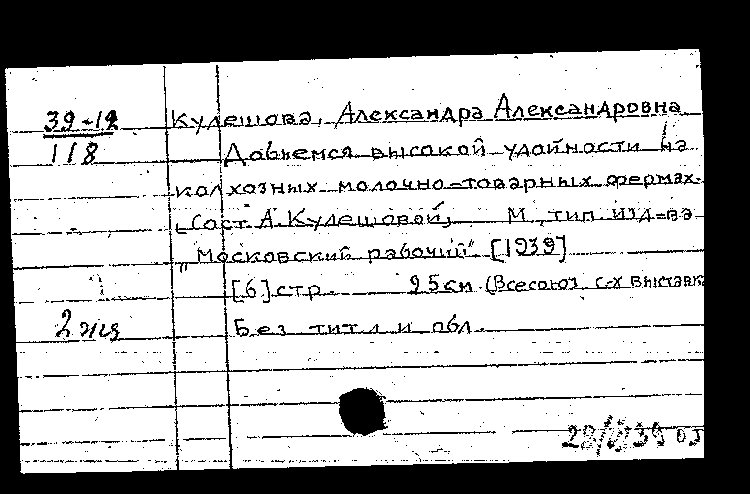 39-12
118
Кулешова, Александра Александровна
Добьемся высокой удойности на
колхозных молочно-товарных фермах.
[Сост. А. Кулешовой], М., тип. изд-ва
„Московский рабочий“ [1939]
[6] стр. 25 см (Всесоюз. с-х выставка
2 экз
Без тит. л. и обл.